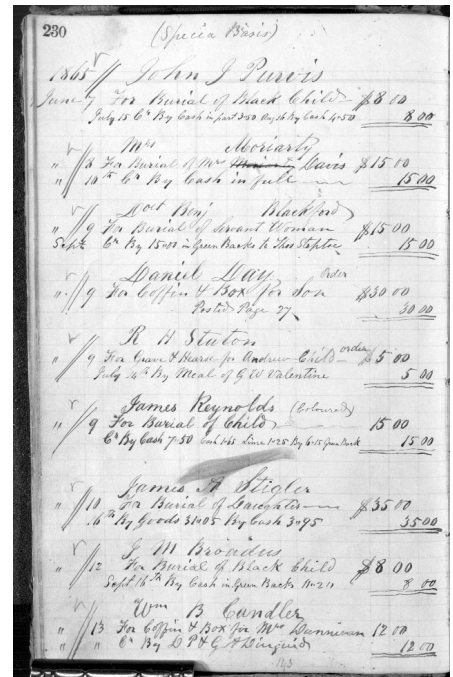 230
(Specia Basis)
1865 John J Purvis
June 7 For Burial of Black Child $8 00
July 15 Cr By Cash in part 3=50 Aug 26 By Cash 4=50 8 00
Mrs Moriarty
" 8 For Burial of Mrs Davis $15 00
" 10th Cr By Cash in full 15 00
Doct Benj Blackford
" 9 For Burial of Servant Woman $15 00
Sept Cr By 15=00 in Green Backs to Thos Steptoe 15 00
Daniel Day order
" 9 For Coffin & Box for Son $30 00
Posted Page 27 30 00
R H Staton
" 9 For Grave & Hearse for Andrew Child order $5 00
July 14th By Meal of G W Valentine 5 00
James Reynolds (Coloured)
" 9 For Burial of Child 15 00
Cr By Cash 7=50 Cash 1=65 Lime 1=25 By 6=15 Green Back 15 00
James A Stigler
" 10 For Burial of Daughter $35 00
" 16th By Goods 31=05 By Cash 3=95 35 00
J M Broadus
" 12 For Burial of Black Child $8 00
Sept 16th By Cash in Green Backs 8 00
Wm B Candler
" 13 For Coffin & Box for Mrs Dunnivan 12 00
" " Cr By D P & G A Diuguid 12 00
143